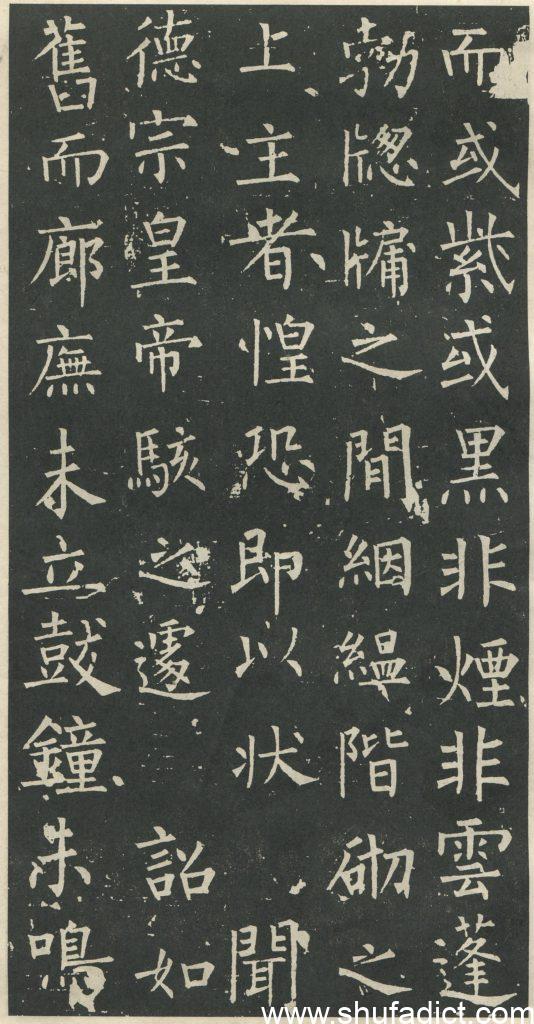 而或紫或黑非煙非雲蓬
勃牕牖之間絪縕階砌之
上主者惶恐即以状 聞
德宗皇帝駭之遽 詔如
舊而廊廡未立鼓鐘未鳴
www.shufadict.com